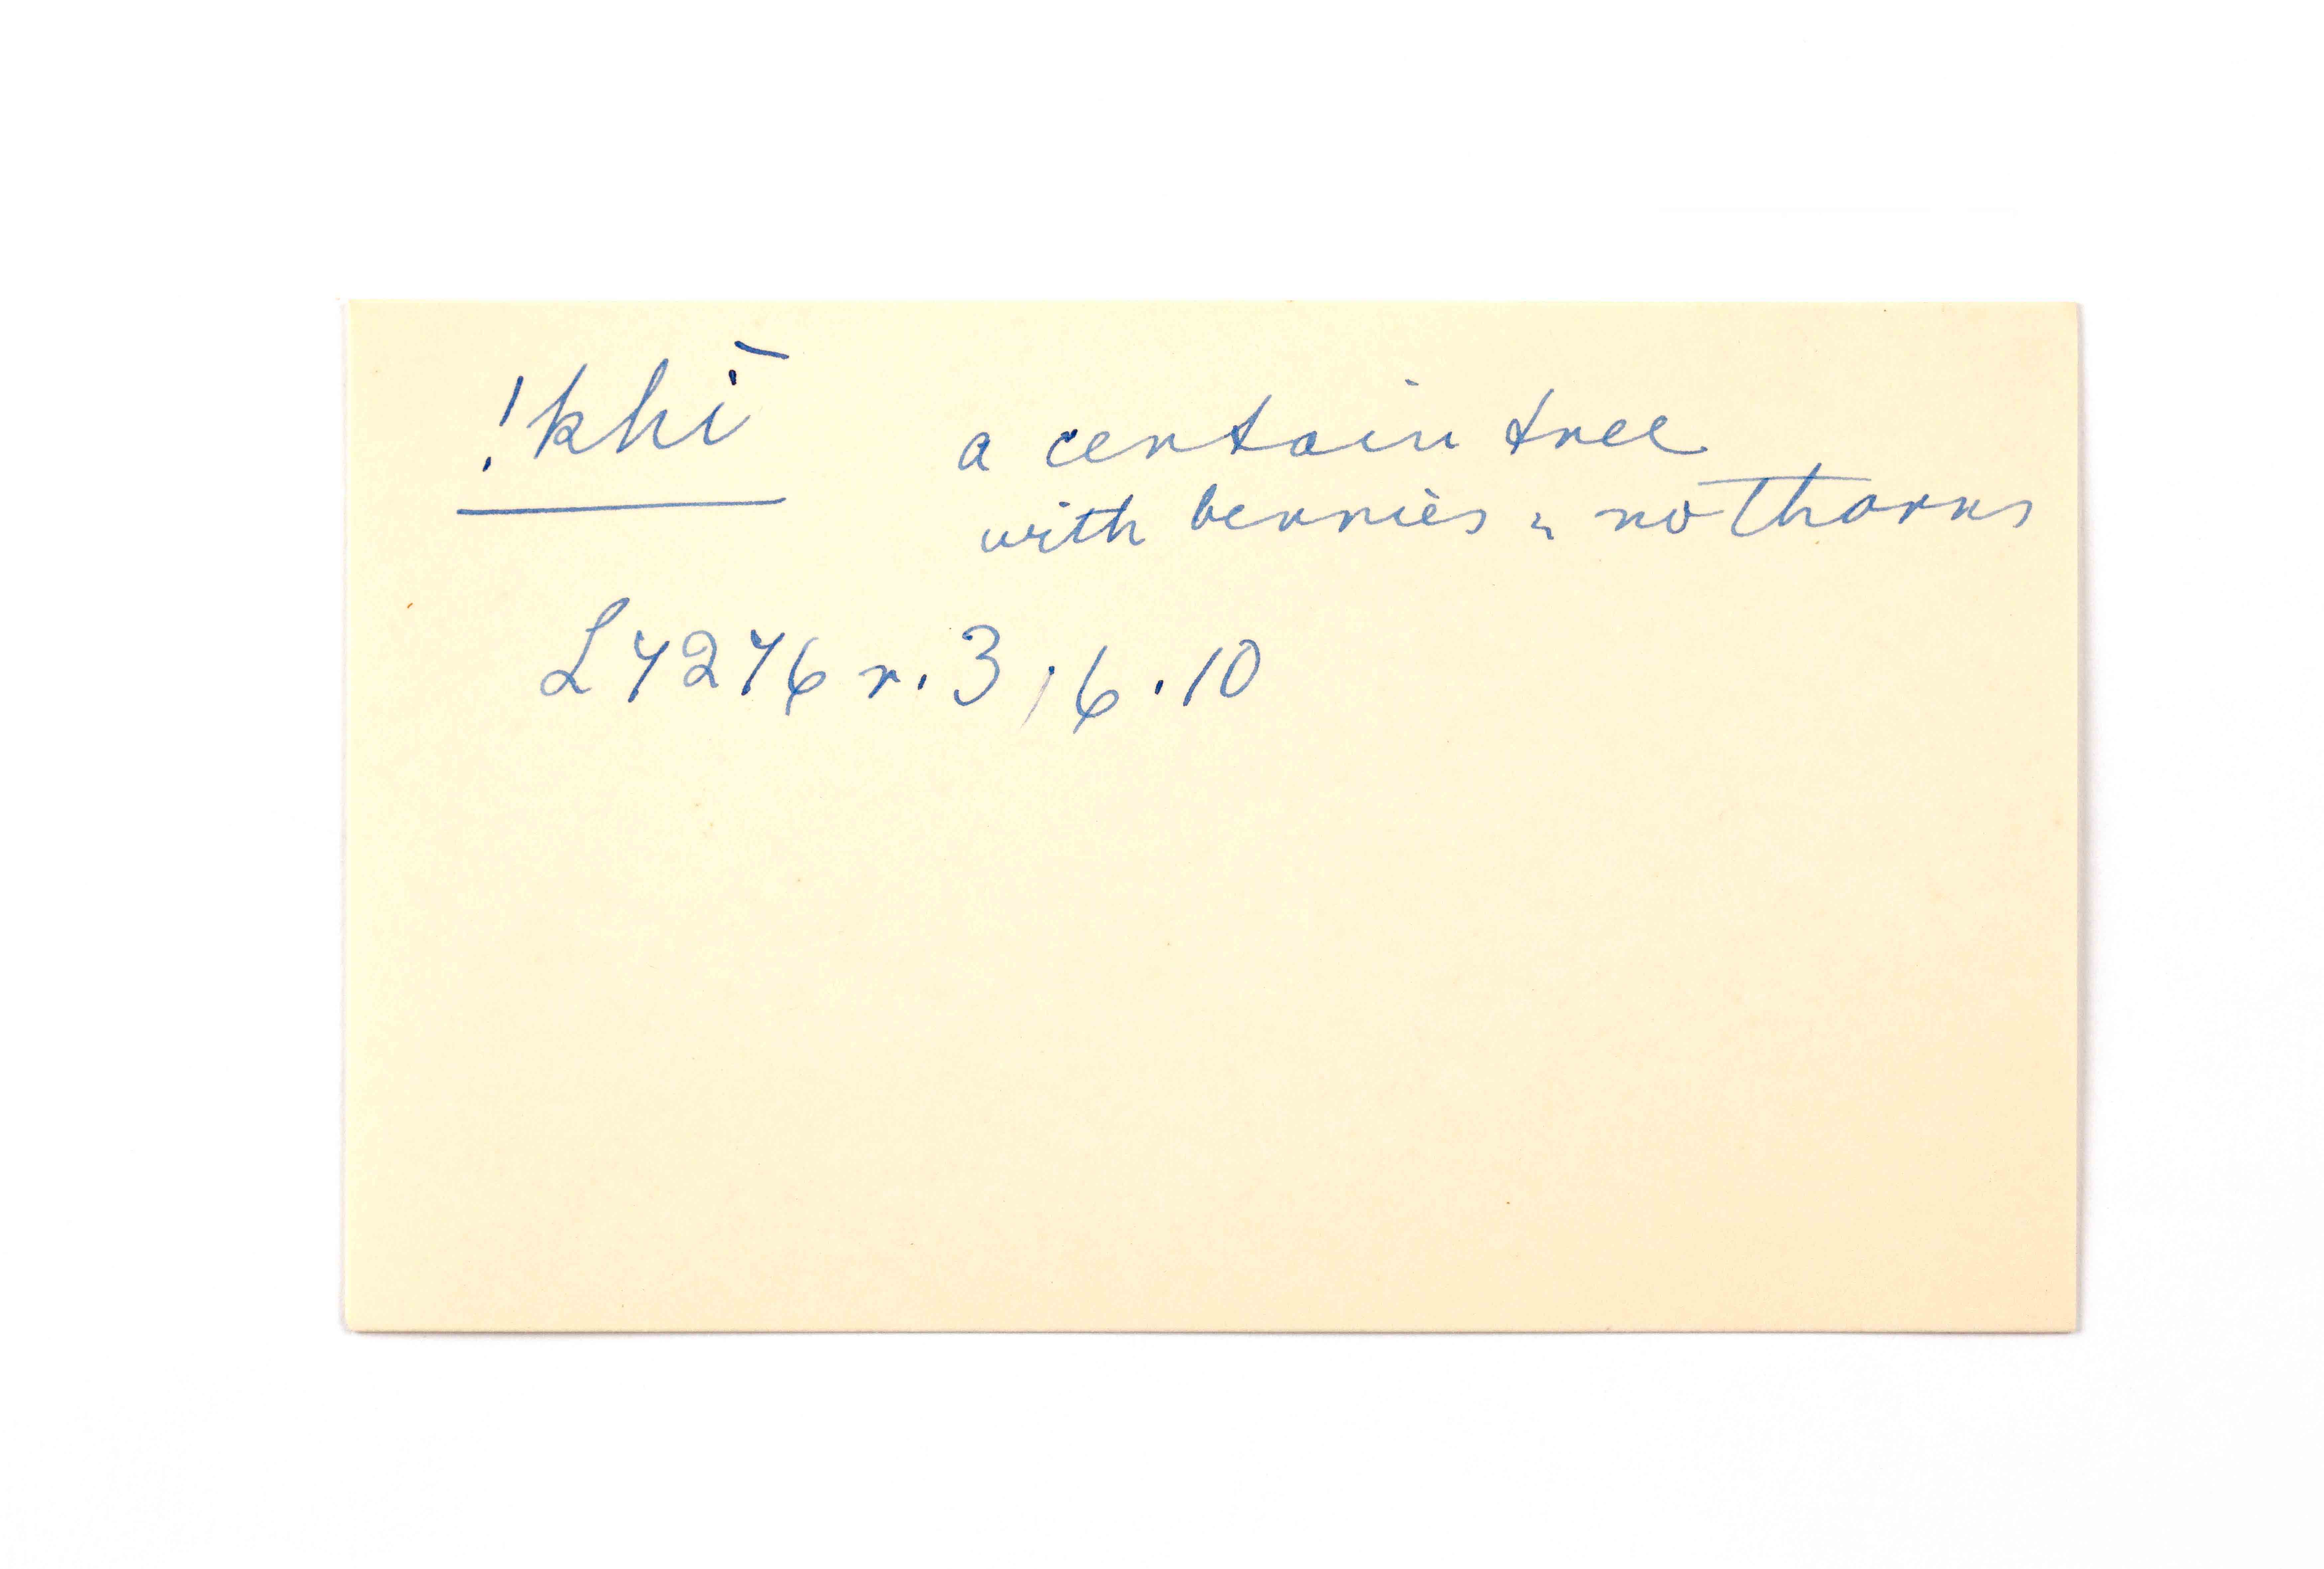 !khī a certain tree
with berries & no thorns
L7276 r. 3, 6. 10